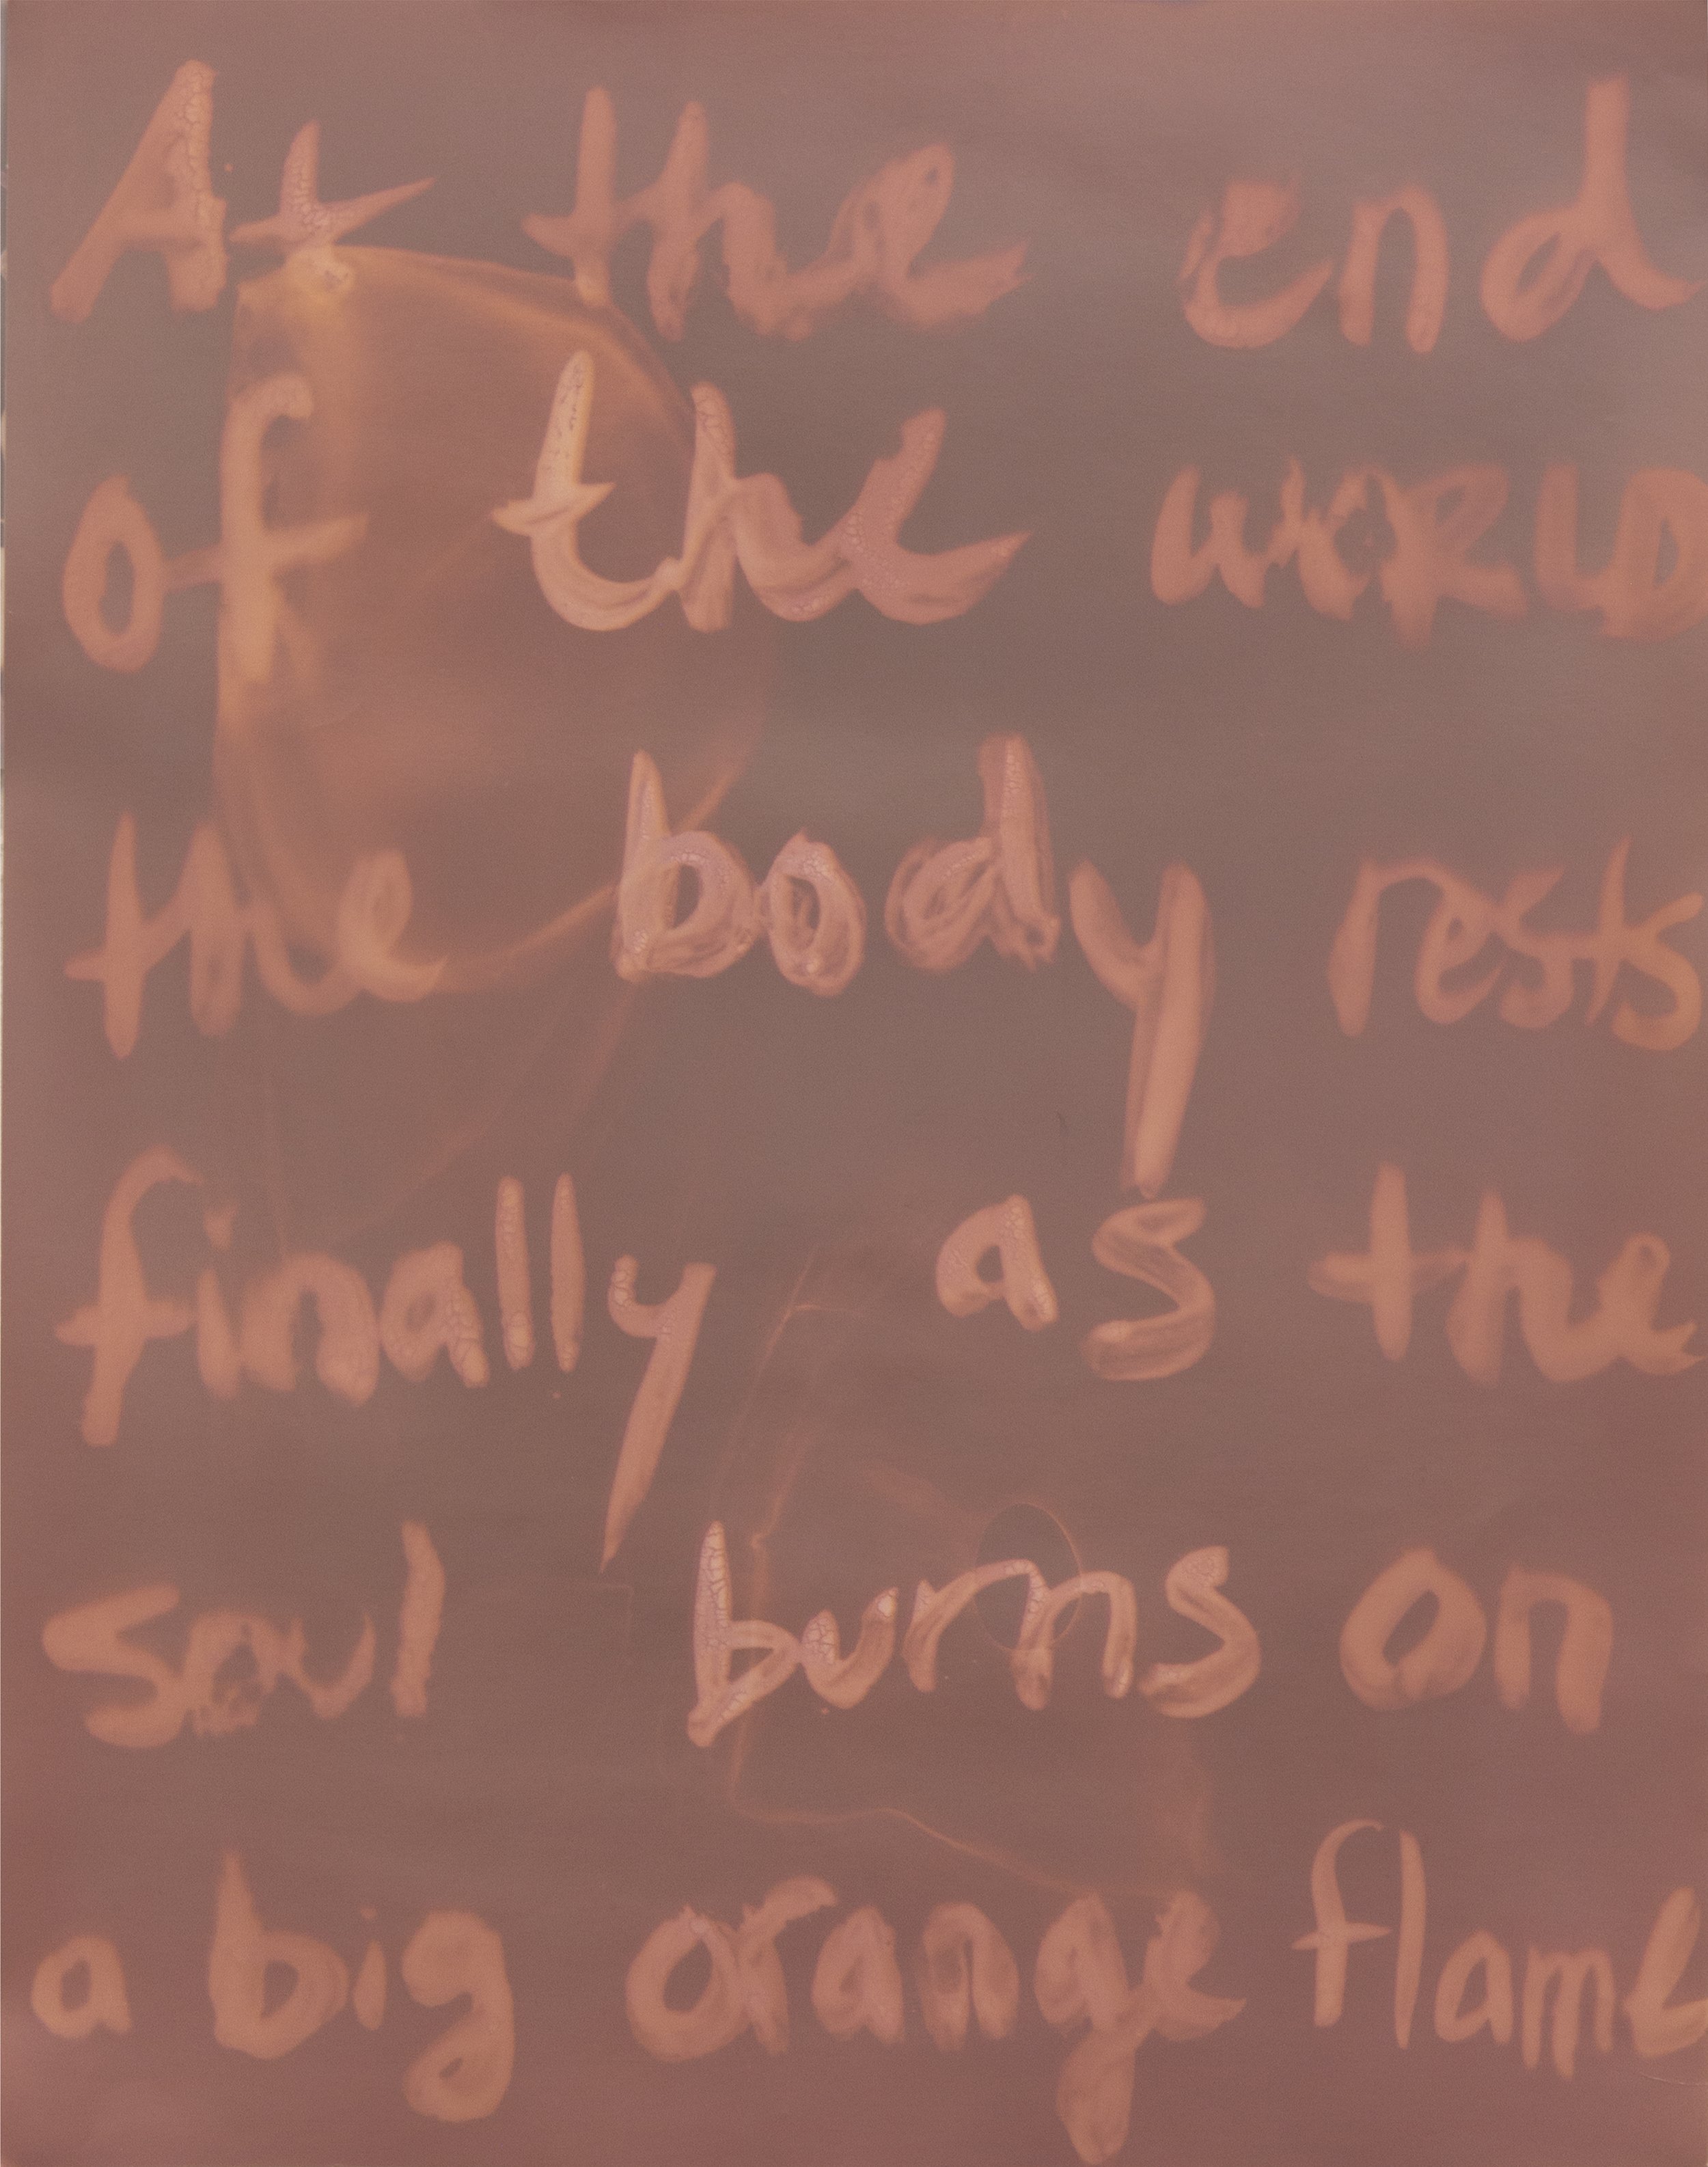 At the end
of the WORLD
the body rests
finally as the
soul burns on
a big orange flame